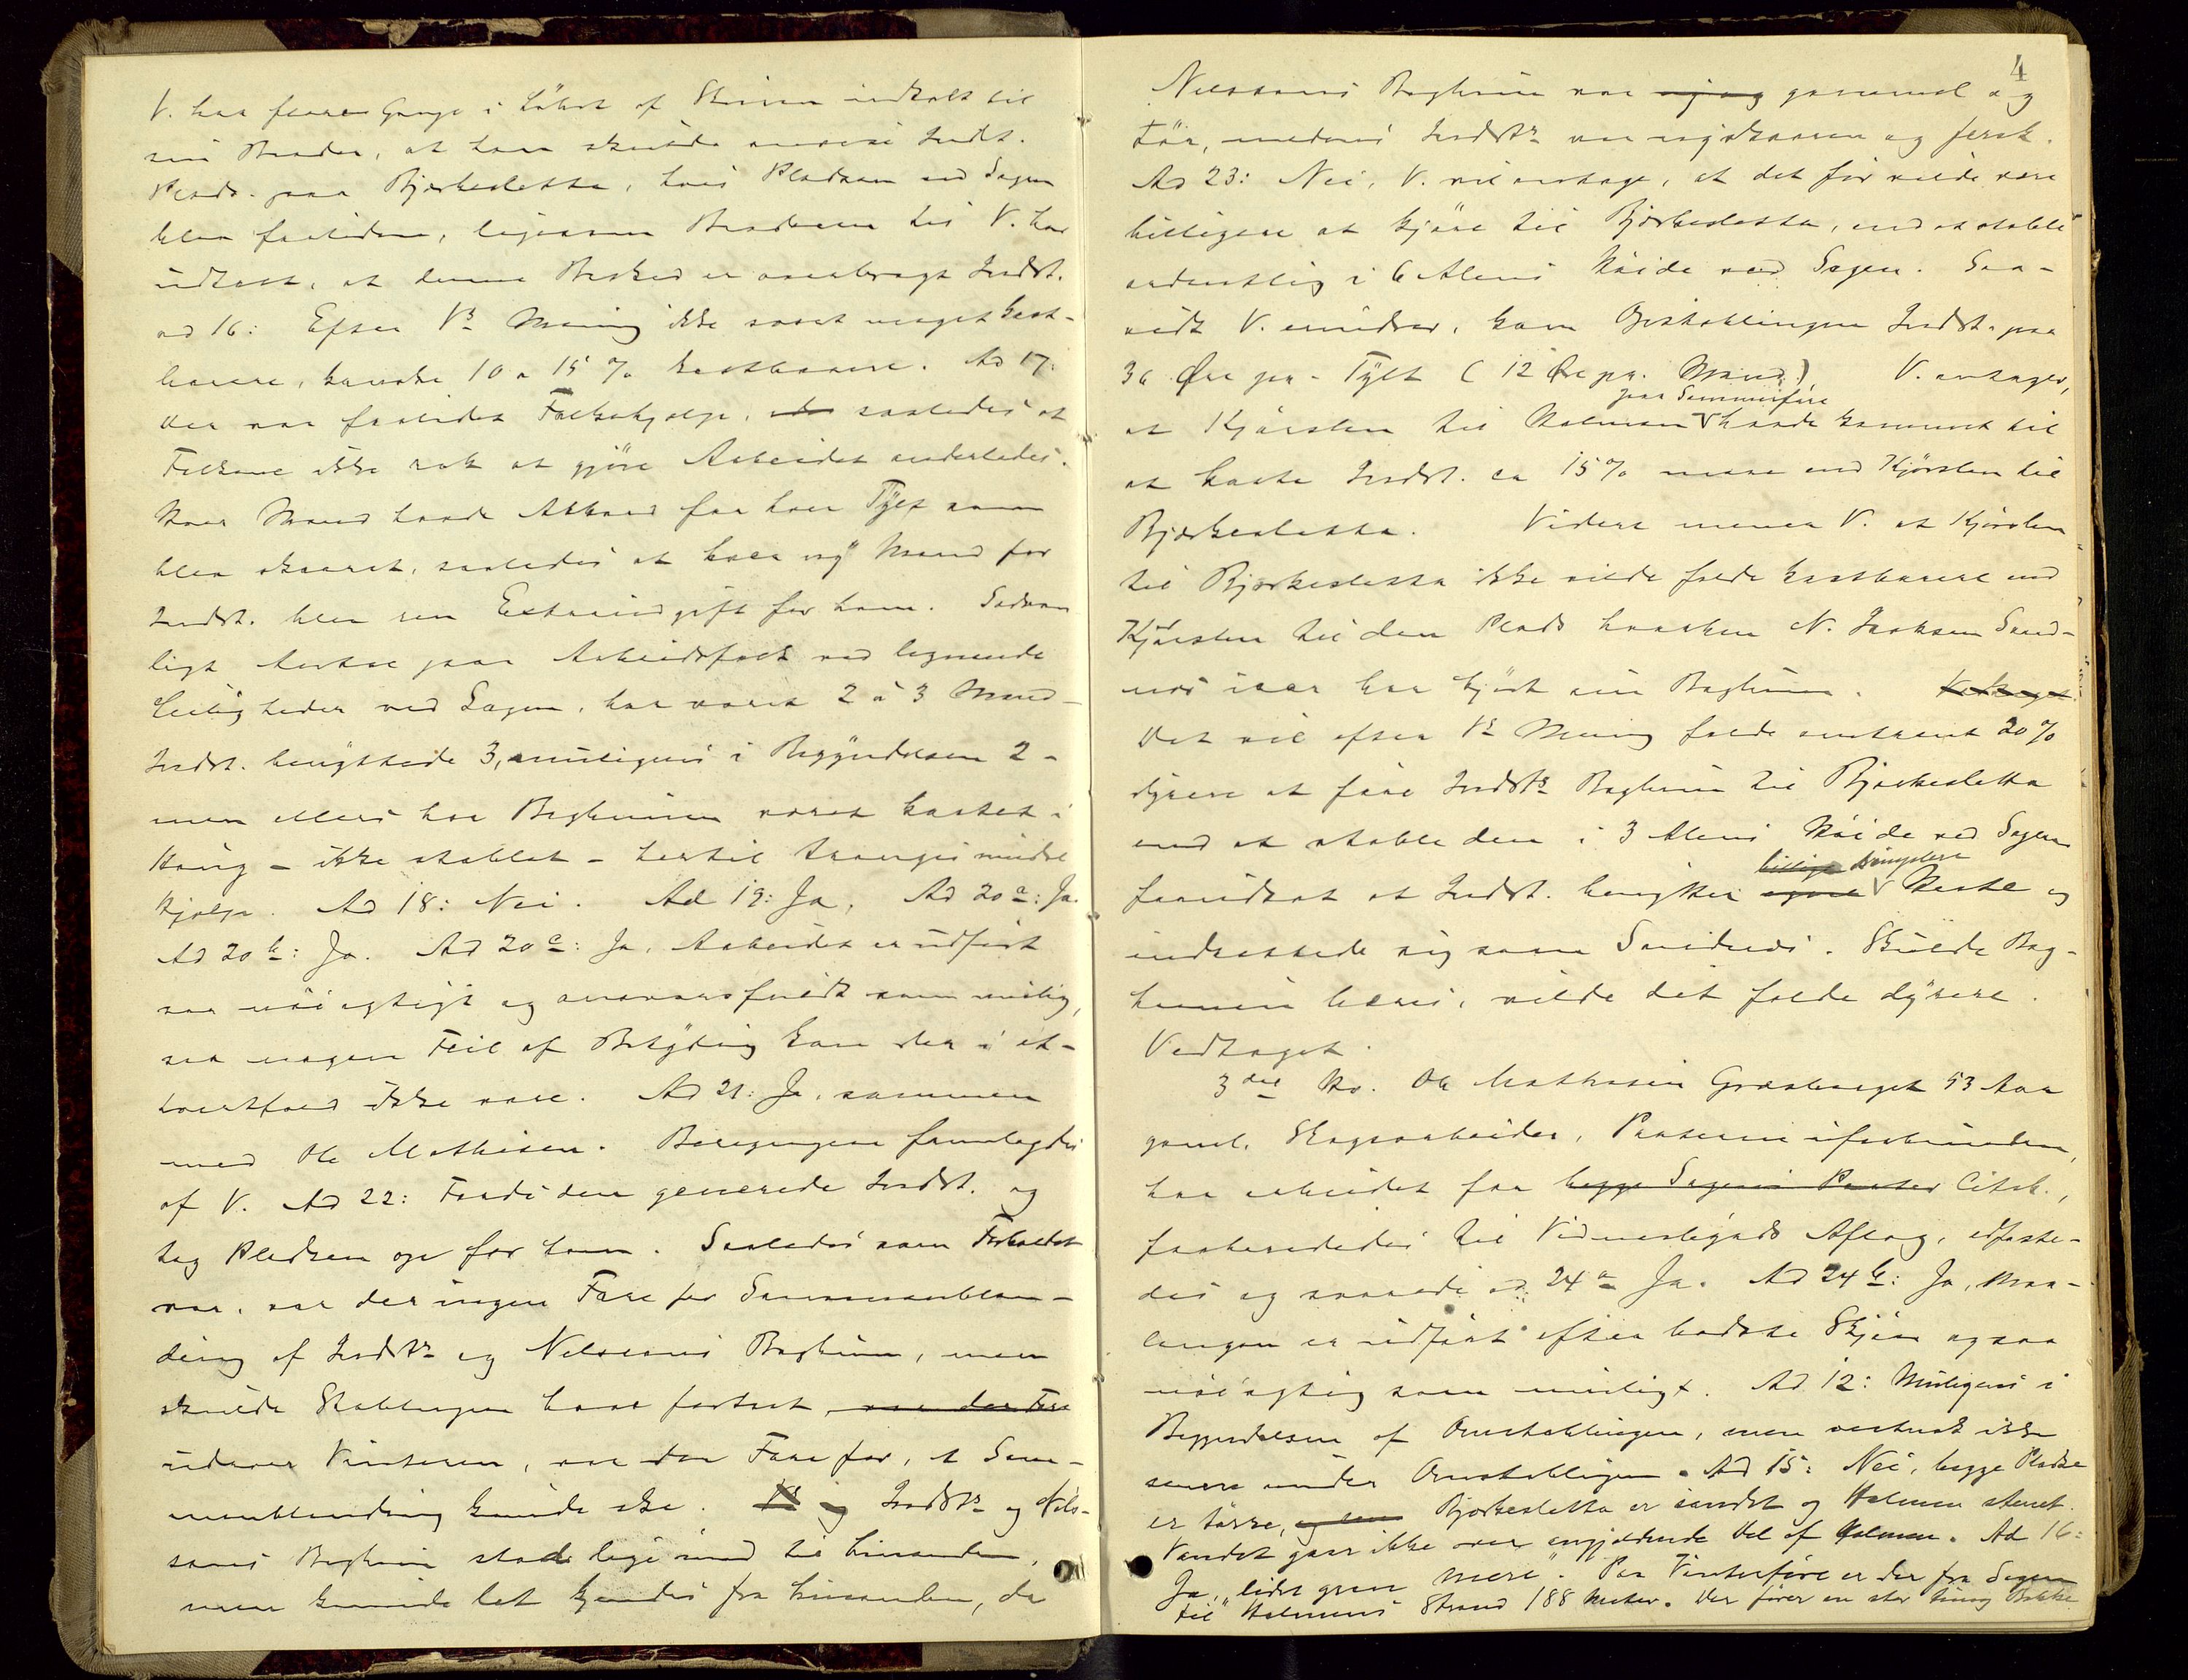 V. har flere Gange i Løbet af Skuren indkaldt til
sin Broder, at han skulde anvise Indst.
Plads paa Bjerkesletta, hvis Pladsen ved Sagen
blev forliden, ligesom Broderen til V. har
udtalt, at denne Besked er overbragt Indst.
ad 16: Efter Vs Mening ikke været meget kost-
barere, kanske 10 a 15 % kostbarere. Ad 17:
Der var forlidet Folkehjælp, saaledes at
Folkene ikke rak at gjöre Arbeidet anderledes.
Hver Mand havde Akkord for hver Tylt som
blev skaaret, saaledes at hver ny Mand for
Indst. blev en Extraudgift for ham. Sædvan
ligt Antal paa Arbeidsfolk ved lignende
Leiligheder ved Sagen, har været 2 à 3 Mand -
Indst. benyttede 3, muligens i Begyndelsen 2 -
men ellers har Baghunen været kastet i
Haug - ikke stablet - hertil tranges mindre
Hjælp. Ad 18: Nei. Ad 19: Ja. Ad 20 a: Ja.
Ad 20 b: Ja. Ad 20 c: Ja. Arbeidet er udført
saa nöiagtigt og ansvarsfuldt som mulig,
saa nogen Feil af Betydning kan der i et-
hvertfald ikke være. Ad 21: Ja, sammen
med Ole Mathisen. Beregningen fremlagdes
af V. Ad 22: Fordi den generede Indst. og
tog Pladsen op for ham. Saaledes som Forholdet
var, var der ingen Fare for Sammenblan-
ding af Indsts og Nilssons Baghun, men
skulde Stablingen have fortsat, var der Fare
udover Vinteren, var der Fare for, at Sam-
menblanding kunde ske. Vs og Indsts og Nils-
sons Baghun stod lige ind til hinanden,
men kunde let kjendes fra hinanden, da
4
Nilssons Baghun var gammel og
tör, medens Indsts var nyskaaren og fersk.
Ad 23: Nei, V. vil antage, at det før vilde være
billigere at kjöre til Bjerkesletta, end at stable
ordentlig i 6 Alens Höide ved Sagen. Saa-
vidt V. erindrer, kom Opstablingen Indst. paa
36 Øre pr. Tylt (12 Øre pr. Mand) V. antager,
paa Sommerföre
at Kjörslen til Holmen havde kommet til
at koste Indst. ca 15 % mere end Kjörslen til
Bjerkesletta. Videre mener V. at Kjörslen
til Bjerkesletta ikke vilde falde kostbarere end
Kjörslen til den Plads hvorhen N. Isaksen Sand-
nes iaar har kjört sin Baghun. Vedtaget
Det vil efter Vs Mening falde omtrent 20 %
dyrere at före Indsts Baghun til Bjerkesletta
end at stable den i 3 Alens Höide ved Sagen
billige simplere
forudsat at Indst. benytter egne Heste og
indrettede sig som Sandnes. Skulde Bag-
hunen bæres, vilde det falde dyrere.
Vedtaget.
3die Vo. Ole Mathisen Græsberget 53 Aar
gaml. Skogsarbeider, Parterne uforbunden,
har arbeidet for begge Sagens Parter Citst.,
forberededes til Vidnesbyrds Aflæg, edfæste-
des og svarede ad: 24 a Ja. Ad 24 b: Ja, Maa-
lingen er udført efter bedste Skjön og saa
nöiagtig som muligt. Ad 12: Muligens i
Begyndelsen af Omstablingen, men vistnok ikke
senere under Omstablingen. Ad 15: Nei, begge Pladse
er tørre, og som Bjerkesletta er sandet og Holmen stenet.
Vandet gaar ikke over angjældende Del af Holmen. Ad 16:
Ja, "lidt grand mere". Paa Vinterföre er der fra Sagen
til Holmens Strand 188 Meter. Der fører en stor Bakke